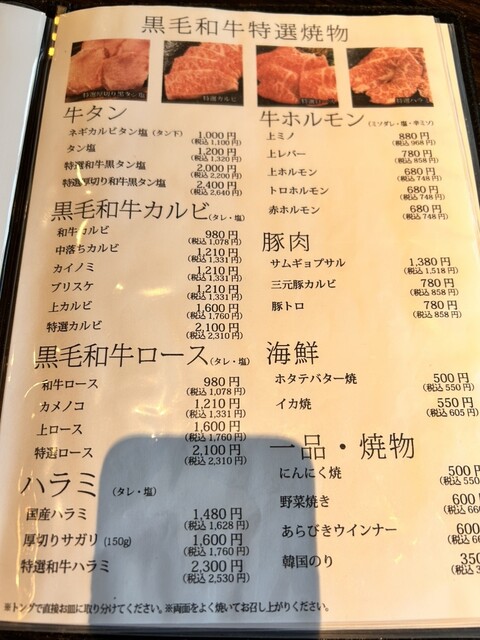 黒毛和牛特選焼物
特選厚切り黒タン塩
特選カルビ
特選ロース
特選ハラミ
牛タン
ネギカルビタン塩(タン下) 1,000円
(税込1,100円)
タン塩 1,200円
(税込1,320円)
特選和牛黒タン塩 2,000円
(税込2,200円)
特選厚切り和牛黒タン塩 2,400円
(税込2,640円)
黒毛和牛カルビ(タレ・塩)
和牛カルビ 980円
(税込1,078円)
中落ちカルビ 1,210円
(税込1,331円)
カイノミ 1,210円
(税込1,331円)
ブリスケ 1,210円
(税込1,331円)
上カルビ 1,600円
(税込1,760円)
特選カルビ 2,100円
(税込2,310円)
黒毛和牛ロース(タレ・塩)
和牛ロース 980円
(税込1,078円)
カメノコ 1,210円
(税込1,331円)
上ロース 1,600円
(税込1,760円)
特選ロース 2,100円
(税込2,310円)
ハラミ(タレ・塩)
国産ハラミ 1,480円
(税込1,628円)
厚切りサガリ(150g) 1,600円
(税込1,760円)
特選和牛ハラミ 2,300円
(税込2,530円)
牛ホルモン(ミソダレ・塩・辛ミソ)
上ミノ 880円
(税込968円)
上レバー 780円
(税込858円)
上ホルモン 680円
(税込748円)
トロホルモン 680円
(税込748円)
赤ホルモン 680円
(税込748円)
豚肉
サムギョプサル 1,380円
(税込1,518円)
三元豚カルビ 780円
(税込858円)
豚トロ 780円
(税込858円)
海鮮
ホタテバター焼 500円
(税込550円)
イカ焼 550円
(税込605円)
一品・焼物
にんにく焼 500円
(税込550
野菜焼き 600
(税込66
あらびきウインナー 600
(税込66
韓国のり 350
(税込3
※トングで直接お皿に取り分けてください。※両面をよく焼いてお召し上がりください。